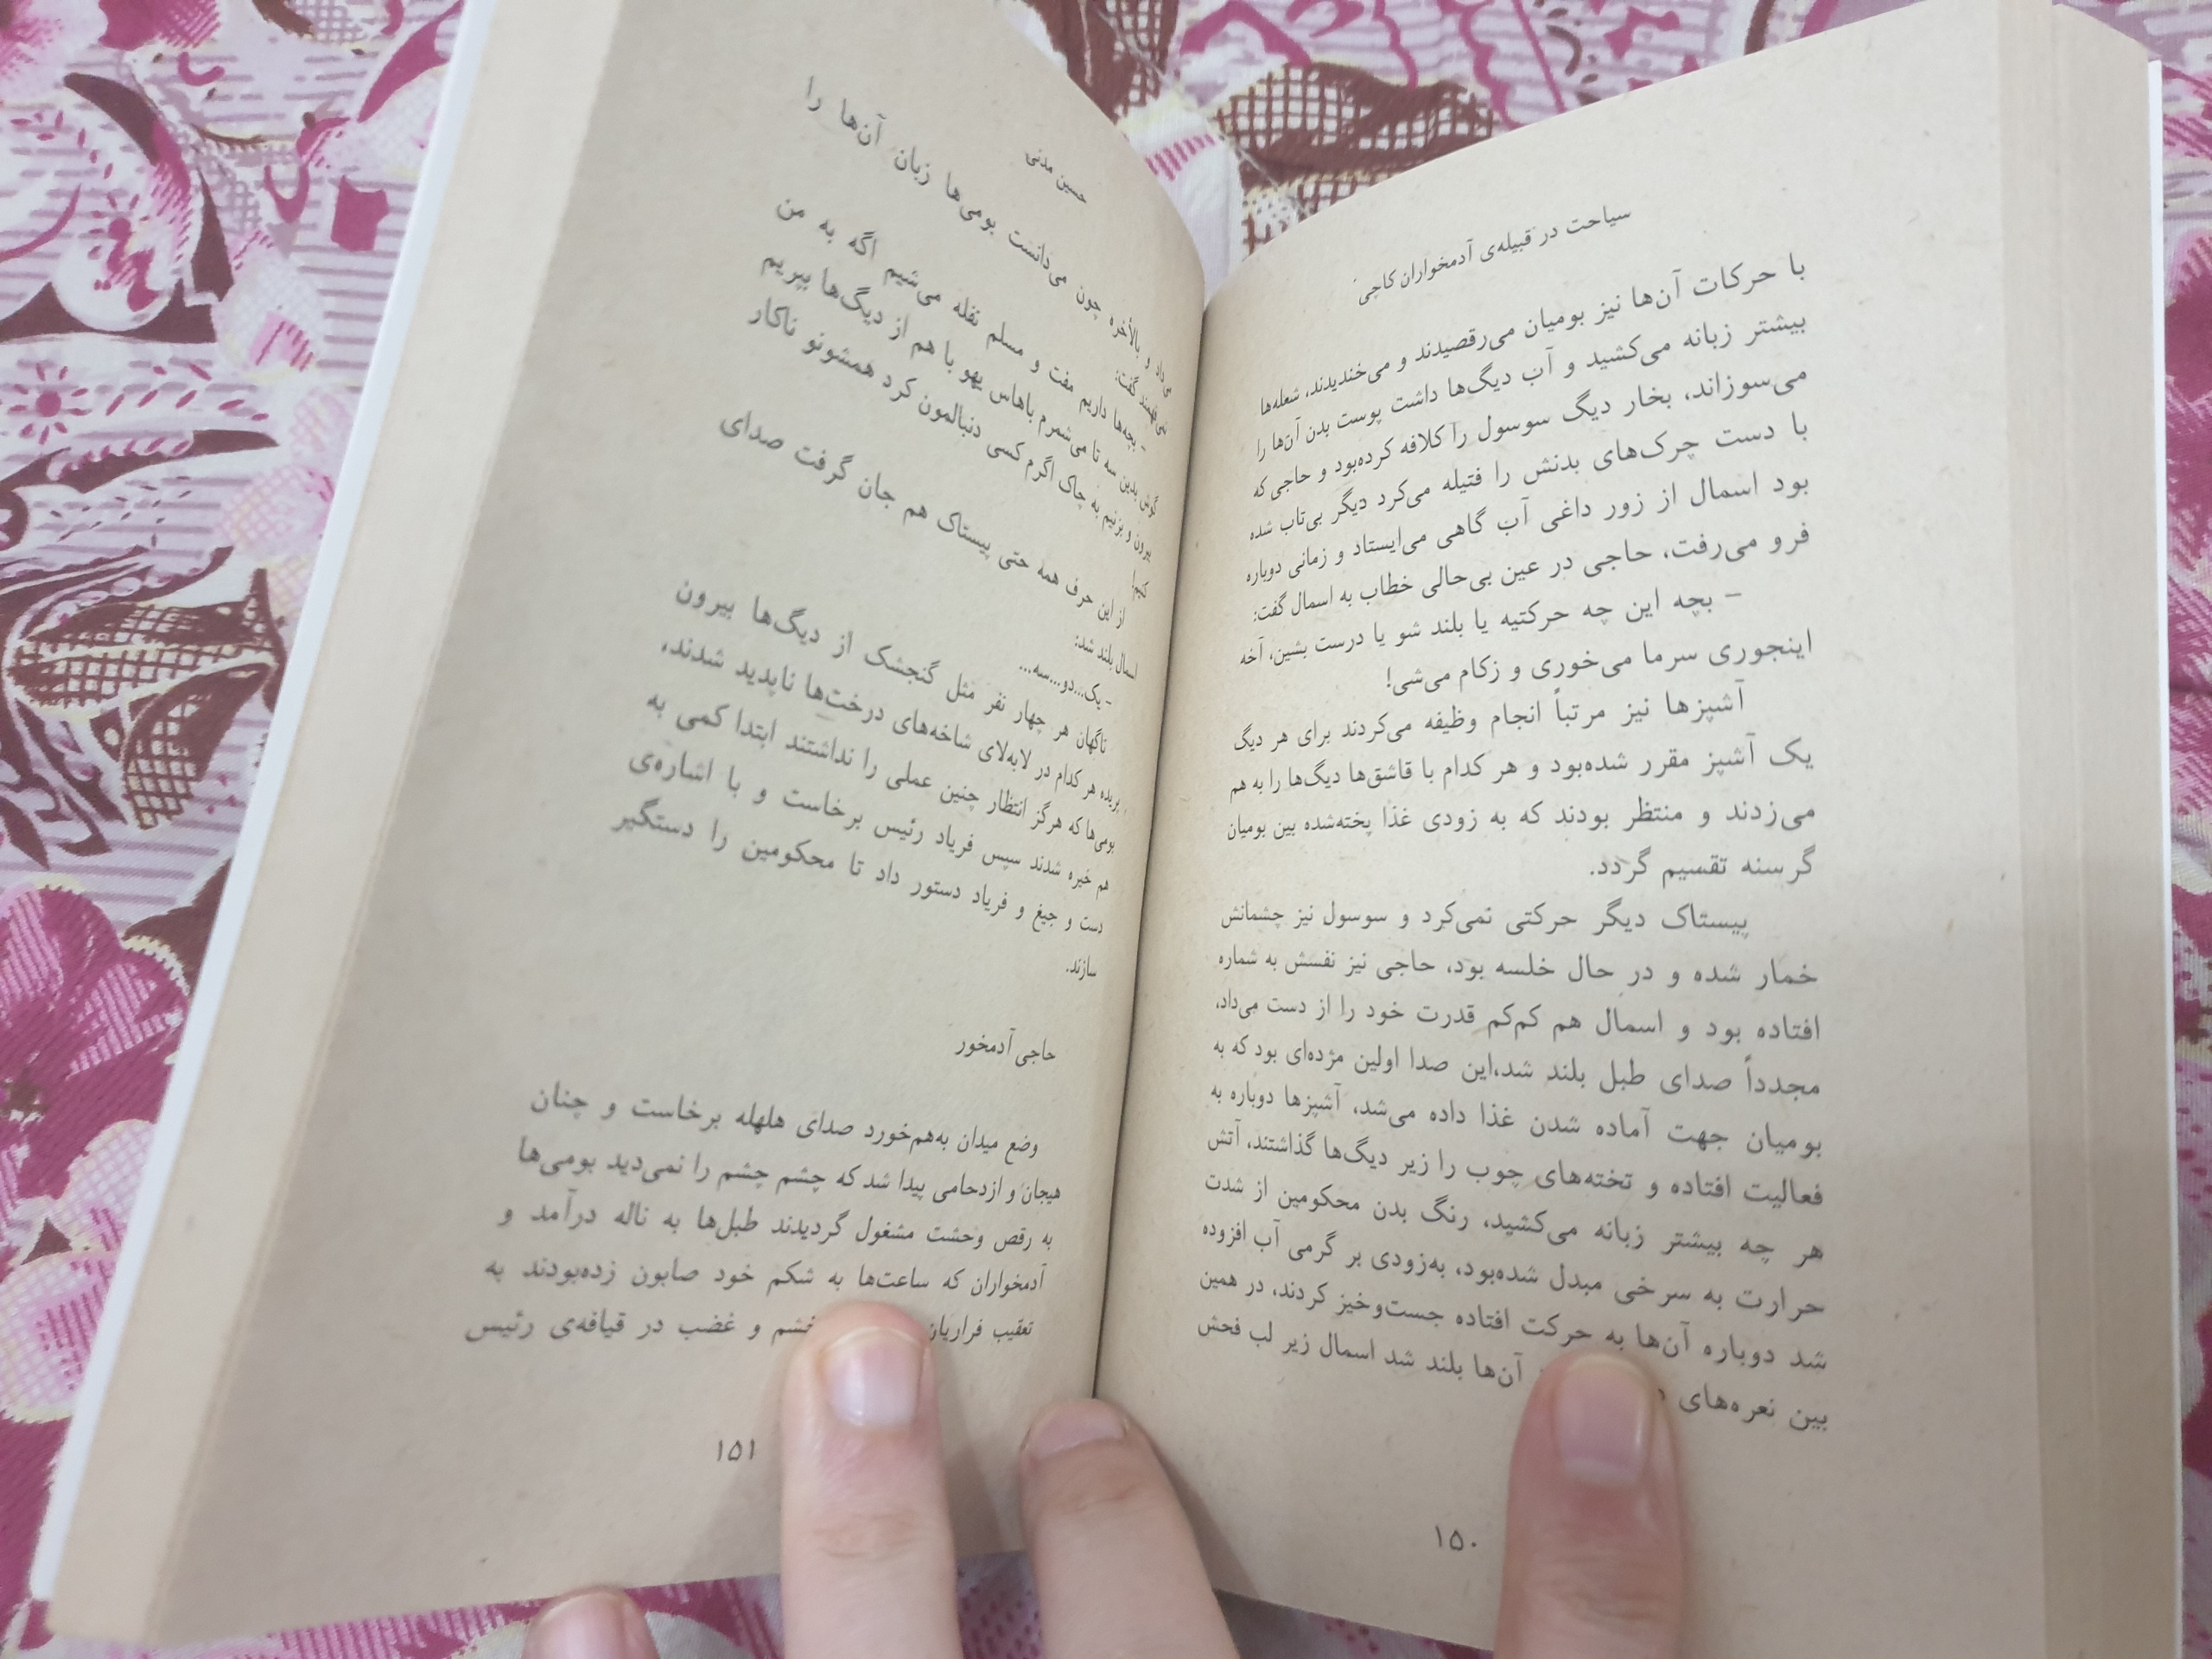 سیاحت در قبیله‌ی آدمخواران کاچی
با حرکات آن‌ها نیز بومیان می‌رقصیدند و می‌خندیدند، شعله‌ها
بیشتر زبانه می‌کشید و آب دیگ‌ها داشت پوست بدن آن‌ها را
می‌سوزاند، بخار دیگ سوسول را کلافه کرده‌بود و حاجی که
با دست چرک‌های بدنش را فتیله می‌کرد دیگر بی‌تاب شده
بود اسمال از زور داغی آب گاهی می‌ایستاد و زمانی دوباره
فرو می‌رفت، حاجی در عین بی‌حالی خطاب به اسمال گفت:
– بچه این چه حرکتیه یا بلند شو یا درست بشین، آخه
اینجوری سرما می‌خوری و زکام می‌شی!
آشپزها نیز مرتباً انجام وظیفه می‌کردند برای هر دیگ
یک آشپز مقرر شده‌بود و هر کدام با قاشق‌ها دیگ‌ها را به هم
می‌زدند و منتظر بودند که به زودی غذا پخته‌شده بین بومیان
گرسنه تقسیم گردد.
پیستاک دیگر حرکتی نمی‌کرد و سوسول نیز چشمانش
خمار شده و در حال خلسه بود، حاجی نیز نفسش به شماره
افتاده بود و اسمال هم کم‌کم قدرت خود را از دست می‌داد،
مجدداً صدای طبل بلند شد،این صدا اولین مژده‌ای بود که به
بومیان جهت آماده شدن غذا داده می‌شد، آشپزها دوباره به
فعالیت افتاده و تخته‌های چوب را زیر دیگ‌ها گذاشتند، آتش
هر چه بیشتر زبانه می‌کشید، رنگ بدن محکومین از شدت
حرارت به سرخی مبدل شده‌بود، به‌زودی بر گرمی آب افزوده
شد دوباره آن‌ها به حرکت افتاده جست‌وخیز کردند، در همین
بین نعره‌های آن‌ها بلند شد اسمال زیر لب فحش
۱۵۰
حسین مدنی
می‌داد و بالأخره چون می‌دانست بومی‌ها زبان آن‌ها را
نمی‌فهمند گفت:
– بچه‌ها داریم مفت و مسلم نفله می‌شیم اگه به من
گوش بدین سه تا می‌شمرم باهاس یهو با هم از دیگ‌ها بپریم
بیرون و بزنیم به چاک اگرم کسی دنبالمون کرد همشونو ناکار
کنیم!
از این حرف همه حتی پیستاک هم جان گرفت صدای
اسمال بلند شد:
– یک...دو...سه...
ناگهان هر چهار نفر مثل گنجشک از دیگ‌ها بیرون
پریده هر کدام در لابه‌لای شاخه‌های درخت‌ها ناپدید شدند،
بومی‌ها که هرگز انتظار چنین عملی را نداشتند ابتدا کمی به
هم خیره شدند سپس فریاد رئیس برخاست و با اشاره‌ی
دست و جیغ و فریاد دستور داد تا محکومین را دستگیر
سازند.
حاجی آدمخور
وضع میدان به‌هم‌خورد صدای هلهله برخاست و چنان
هیجان و ازدحامی پیدا شد که چشم چشم را نمی‌دید بومی‌ها
به رقص وحشت مشغول گردیدند طبل‌ها به ناله درآمد و
آدمخواران که ساعت‌ها به شکم خود صابون زده‌بودند به
تعقیب فراریان خشم و غضب در قیافه‌ی رئیس
۱۵۱